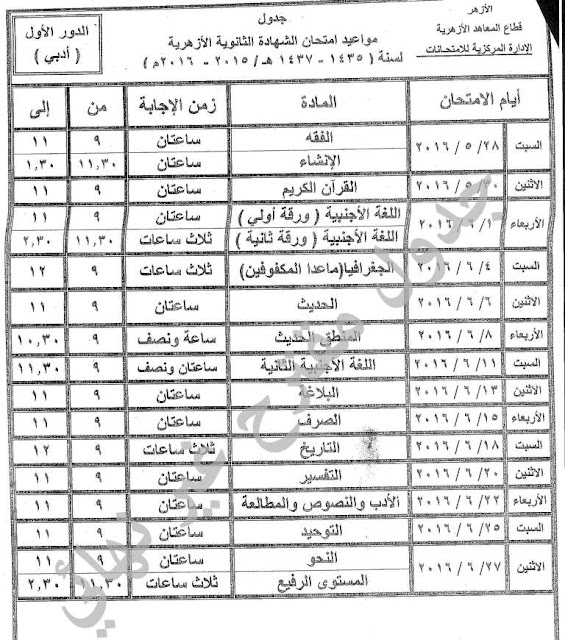 الأزهر
قطاع المعاهد الأزهرية
الإدارة المركزية للامتحانات
جدول
مواعيد امتحان الشهادة الثانوية الأزهرية
لسنة ( ١٤٣٥ - ١٤٣٧ هـ / ٢٠١٥ - ٢٠١٦ م )
الدور الأول
( أدبي )
أيام الامتحان المادة زمن الإجابة من إلى
السبت ٢٨ / ٥ / ٢٠١٦ الفقه ساعتان ٩ ١١
الإنشاء ساعتان ١١,٣٠ ١,٣٠
الاثنين ٣٠ / ٥ / ٢٠١٦ القرآن الكريم ساعتان ٩ ١١
الأربعاء ١ / ٦ / ٢٠١٦ اللغة الأجنبية ( ورقة أولي ) ساعتان ٩ ١١
اللغة الأجنبية ( ورقة ثانية ) ثلاث ساعات ١١,٣٠ ٢,٣٠
السبت ٤ / ٦ / ٢٠١٦ الجغرافيا(ماعدا المكفوفين) ثلاث ساعات ٩ ١٢
الاثنين ٦ / ٦ / ٢٠١٦ الحديث ساعتان ٩ ١١
الأربعاء ٨ / ٦ / ٢٠١٦ المنطق الحديث ساعة ونصف ٩ ١٠,٣٠
السبت ١١ / ٦ / ٢٠١٦ اللغة الأجنبية الثانية ساعتان ونصف ٩ ١١,٣٠
الاثنين ١٣ / ٦ / ٢٠١٦ البلاغة ساعتان ٩ ١١
الأربعاء ١٥ / ٦ / ٢٠١٦ الصرف ساعتان ٩ ١١
السبت ١٨ / ٦ / ٢٠١٦ التاريخ ثلاث ساعات ٩ ١٢
الاثنين ٢٠ / ٦ / ٢٠١٦ التفسير ساعتان ٩ ١١
الأربعاء ٢٢ / ٦ / ٢٠١٦ الأدب والنصوص والمطالعة ساعتان ٩ ١١
السبت ٢٥ / ٦ / ٢٠١٦ التوحيد ساعتان ٩ ١١
الاثنين ٢٧ / ٦ / ٢٠١٦ النحو ساعتان ٩ ١١
المستوى الرفيع ثلاث ساعات ١١,٣٠ ٢,٣٠
جدول مقترح غير نهائي